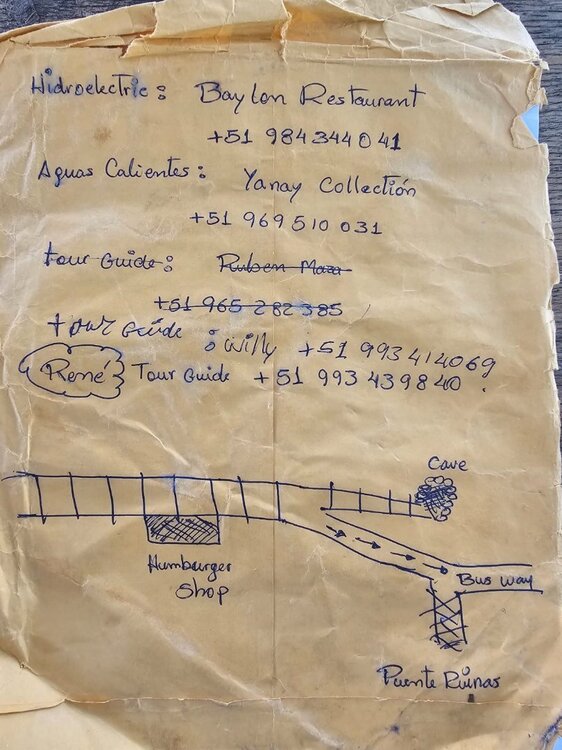 Hidroelectric: Baylon Restaurant
+51 984344041
Aguas Calientes: Yanay Collectión
+51 969510 031
tour Guide: Ruben Maza
+51 965 282 385
tour Guide : Willy +51 993414069
René Tour Guide +51 993 439840.
Cave
Bus way
Humburger
Shop
Puente Ruinas